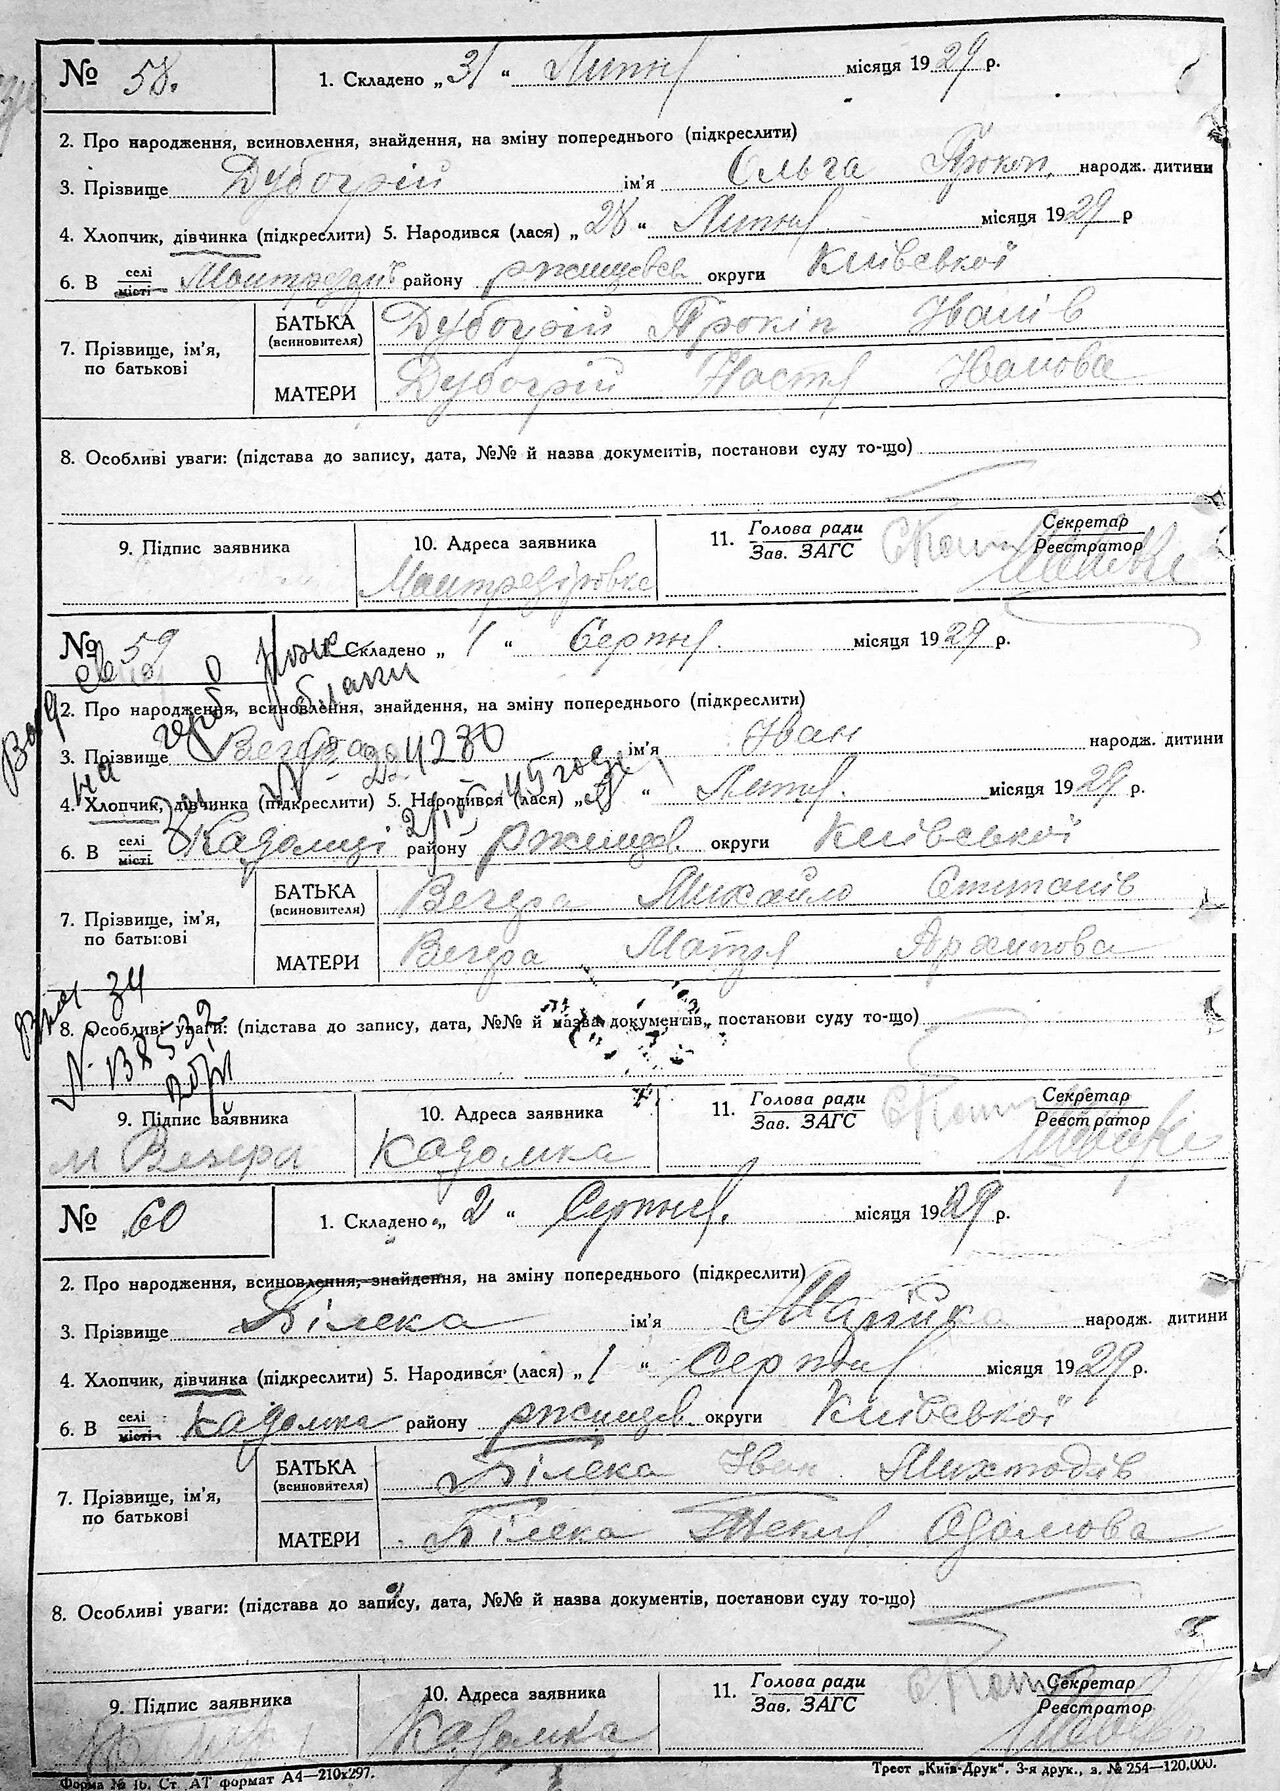 № 58. 1. Складено „ 31 “ Липня місяця 1929 р.
2. Про народження, всиновлення, знайдення, на зміну попереднього (підкреслити)
3. Прізвище Дубогрій ім'я Ольга Прокоп. народж. дитини
4. Хлопчик, дівчинка (підкреслити) 5. Народився (лася) „ 28 “ Липня місяця 1929 р
6. В селі місті району ржищевськ округи Київської
7. Прізвище, ім'я, по батькові БАТЬКА (всиновителя) Дубогрій Прокіп Іванів
МАТЕРИ Дубогрій Настя Іванова
8. Особливі уваги: (підстава до запису, дата, №№ й назва документів, постанови суду то-що)
9. Підпис заявника 10. Адреса заявника 11. Голова ради Зав. ЗАГС Секретар Реєстратор
№ 59 Складено „ 1 “ Серпня. місяця 1929 р.
2. Про народження, всиновлення, знайдення, на зміну попереднього (підкреслити)
3. Прізвище Вечера ім'я Іван народж. дитини
4. Хлопчик, дівчинка (підкреслити) 5. Народився (лася) „ “ Липня. місяця 1929 р.
6. В селі місті Кадомці району ржищев. округи Київської
7. Прізвище, ім'я, по батькові БАТЬКА (всиновителя) Вечера Михайло Степанів
МАТЕРИ Вечера Мотря Архипова
8. Особливі уваги: (підстава до запису, дата, №№ й назва документів, постанови суду то-що)
9. Підпис заявника 10. Адреса заявника 11. Голова ради Зав. ЗАГС Секретар Реєстратор
м Вечера Кадомка
№ 60 1. Складено „ 2 “ Серпня. місяця 1929 р.
2. Про народження, всиновлення, знайдення, на зміну попереднього (підкреслити)
3. Прізвище Білека ім'я Марійка народж. дитини
4. Хлопчик, дівчинка (підкреслити) 5. Народився (лася) „ 1 “ Серпня місяця 1929 р.
6. В селі місті Кадомка району ржищев. округи Київської
7. Прізвище, ім'я, по батькові БАТЬКА (всиновителя) Білека Іван
МАТЕРИ Білека Текля Адамова
8. Особливі уваги: (підстава до запису, дата, №№ й назва документів, постанови суду то-що)
9. Підпис заявника 10. Адреса заявника 11. Голова ради Зав. ЗАГС Секретар Реєстратор
Кадомка
Форма № 1б. Ст. АТ формат А4—210х297. Трест „Київ-Друк“. 3-я друк., з. № 254—120.000.